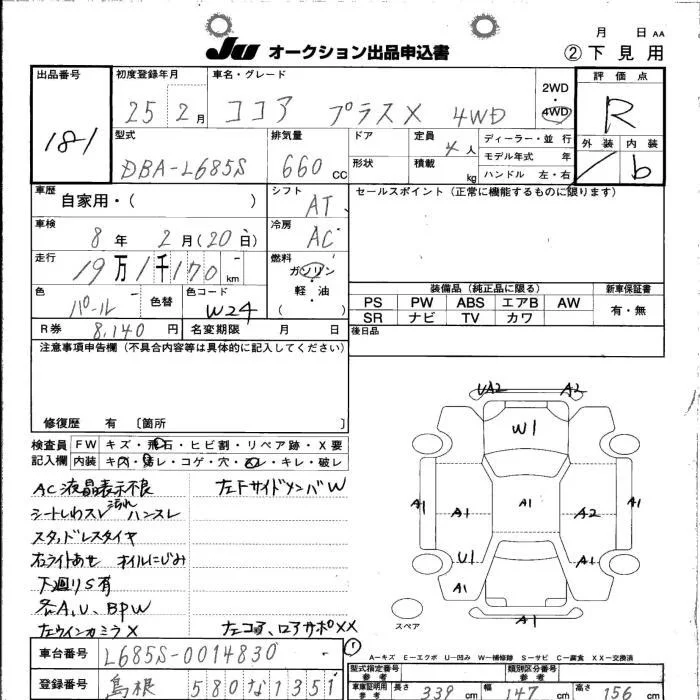 JU オークション出品申込書
月 日 AA
②下見用
出品番号 181
初度登録年月 25 2月
車名・グレード ココア プラスX 4WD
2WD 4WD
評価点 R
外装 内装 b
型式 DBA-L685S
排気量 660 CC
ドア 形状
定員 4人 積載 kg
ディーラー・並行
モデル年式 年
ハンドル 左・右
車歴 自家用・( )
シフト AT
セールスポイント (正常に機能するものに限ります)
車検 8年 2月(20日)
冷房 AC
走行 19万1千170 km
燃料 ガソリン・軽油 ( )
色 パール 色替 色コード W24
装備品 (純正品に限る) 新車保証書
PS PW ABS エアB AW 有・無
SR ナビ TV カワ
R券 8,140円 名変期限 月 日
後日品
注意事項申告欄 (不具合内容等は具体的に記入してください)
修復歴 有 〔箇所 〕
検査員記入欄
FW キズ・飛石・ヒビ割・リペア跡・X要
内装 キズ・汚レ・コゲ・穴・スレ・キレ・破レ
AC液晶表示不良 左FサイドメンバW
シートしわスレ 汚れ ハンスレ
スタッドレスタイヤ
右ライトあせ オイルにじみ
下廻りS有
各A、U、BPW
左ウインカミラX 左コア、ロアサポXX
UA2 A2
W1
A1 A1 A1 A2 A1
U1 A1
A1
A1
スペア
①
A-キズ E-エクボ U-凹み W-補修跡 S-サビ C-腐食 XX-交換済
車台番号 L685S-0014830
型式指定番号 参考 類別区分番号 参考
登録番号 島根 580 な 1351
車庫証明用 参考 長さ 339 cm 幅 147 cm 高さ 156 cm